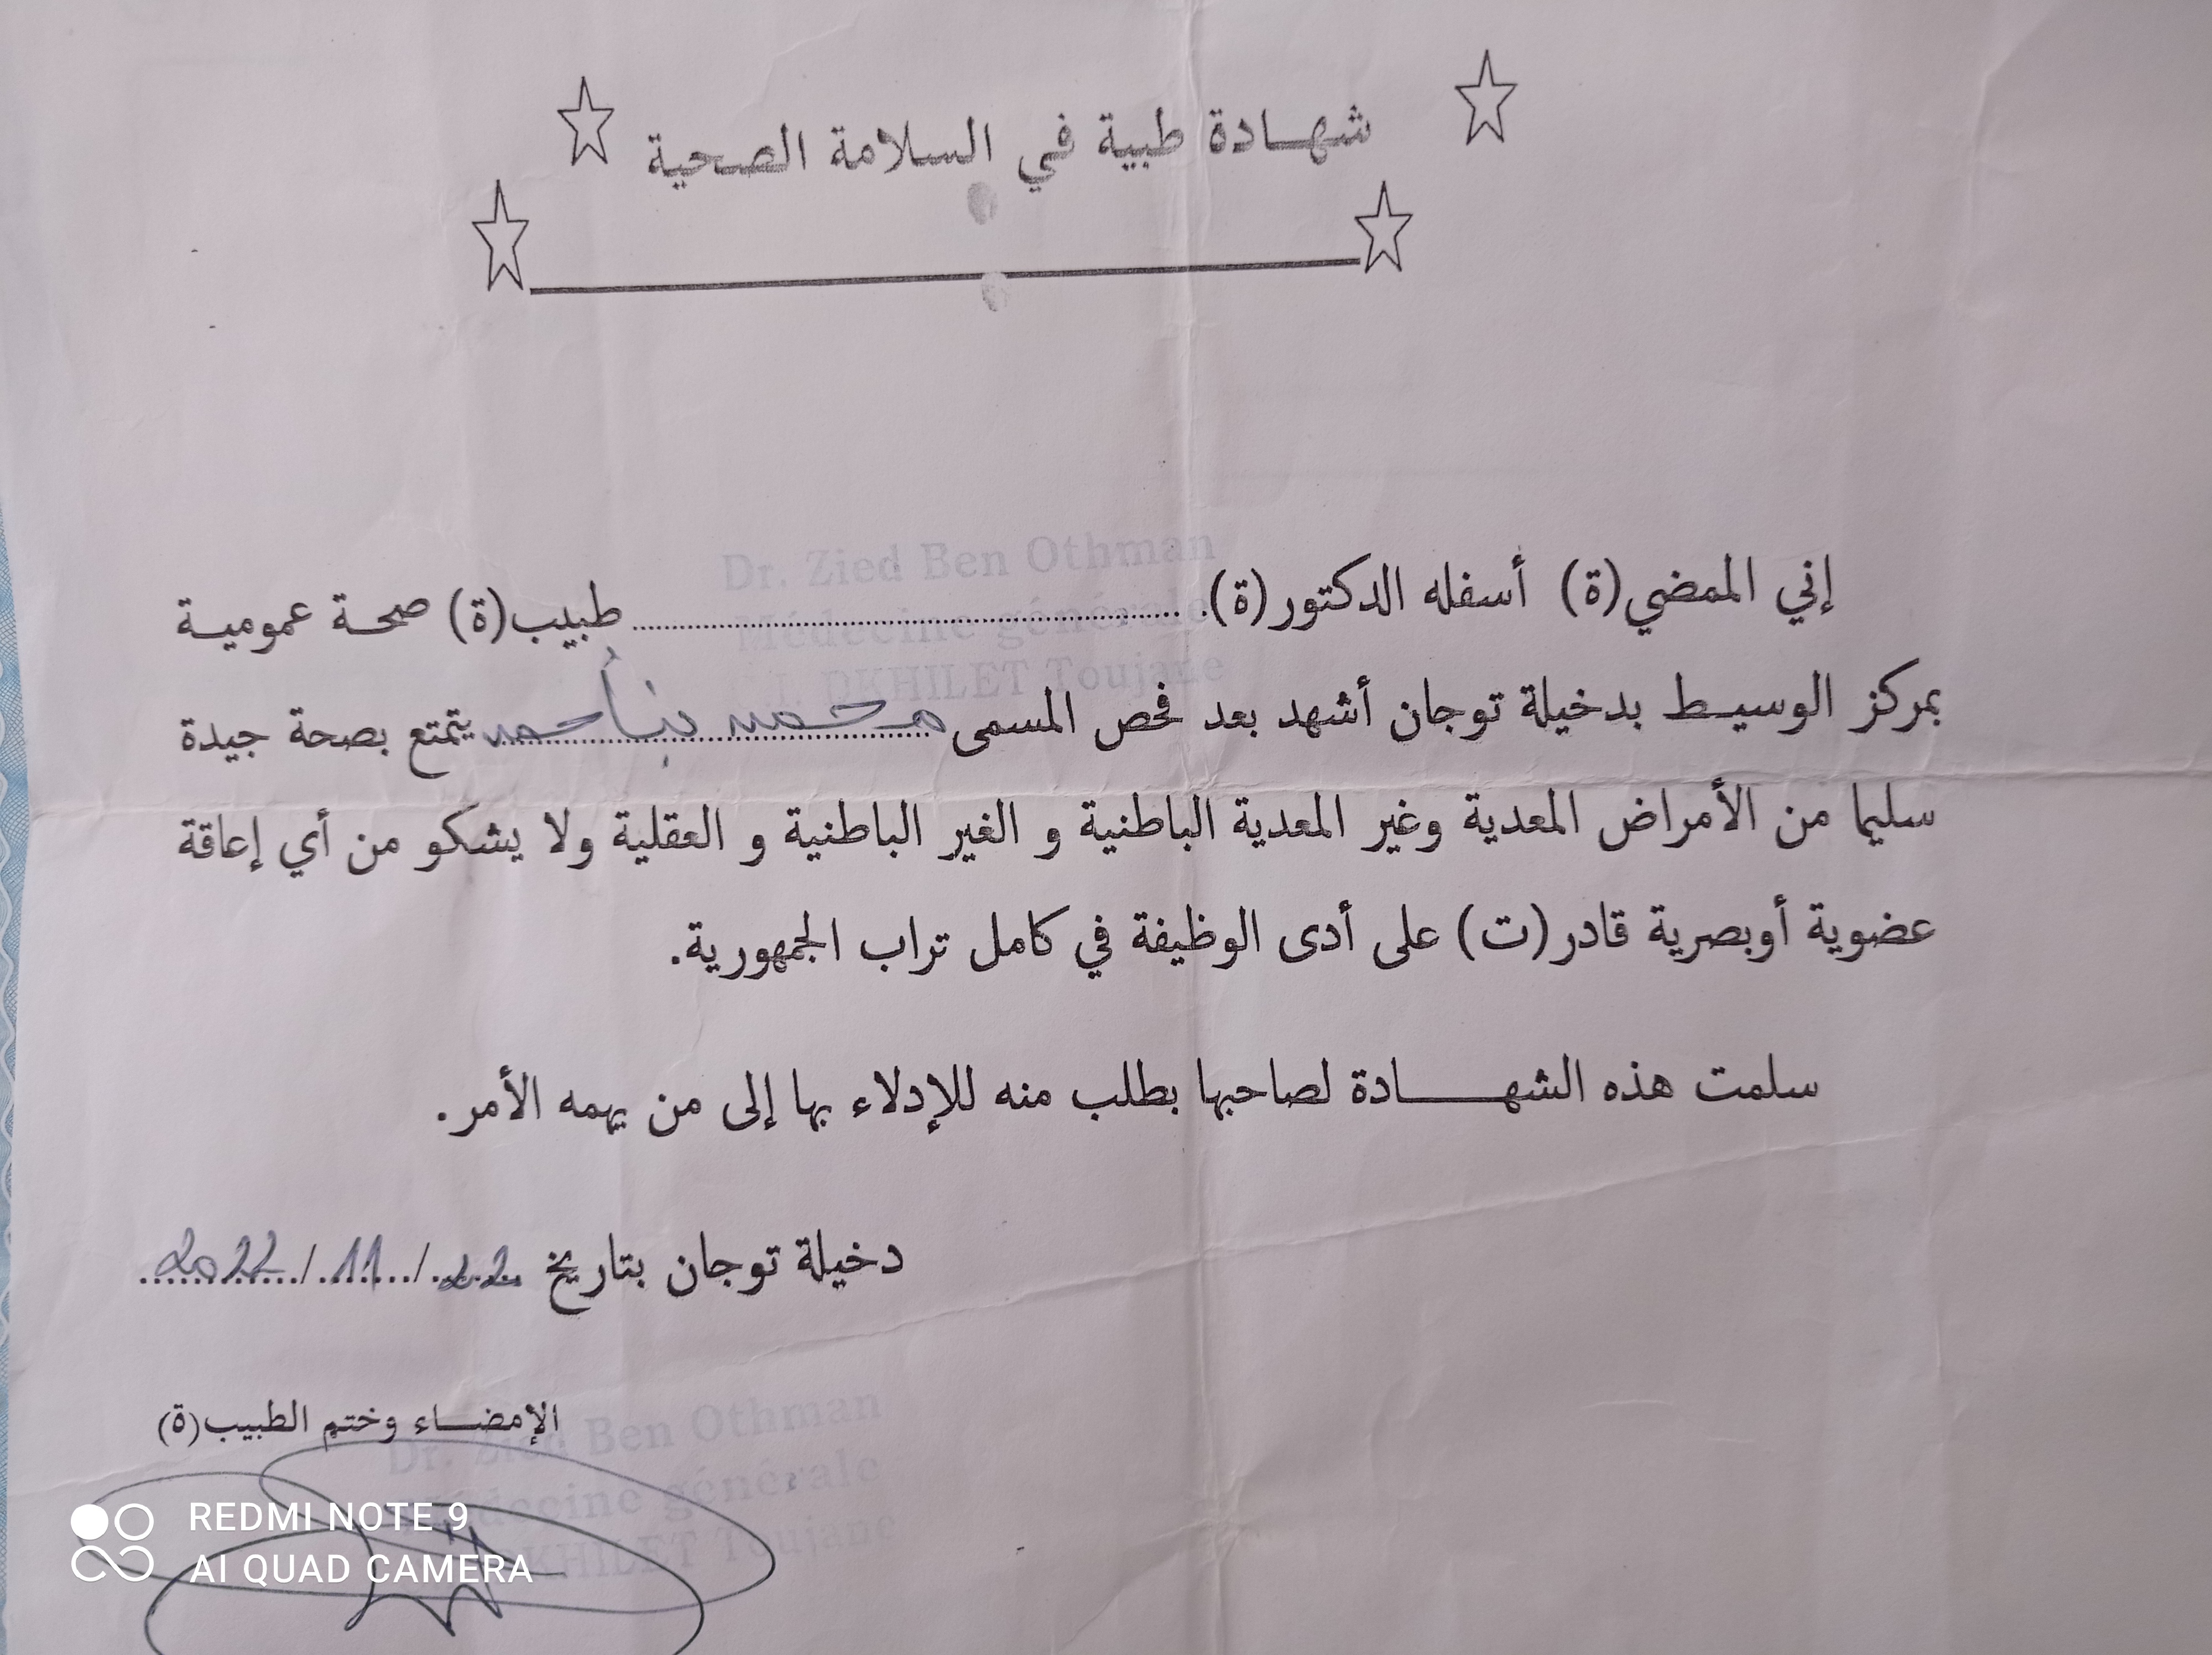 شهـــادة طبية في السلامة الصحية
Dr. Zied Ben Othman
Médecine générale
DKHILET Toujane
إني الممضي(ة) أسفله الدكتور(ة)........................طبيب(ة) صحة عمومية
بمركز الوسيط بدخيلة توجان أشهد بعد فحص المسمى محمد بنأحمد يتمتع بصحة جيدة
سليما من الأمراض المعدية وغير المعدية الباطنية و الغير الباطنية و العقلية ولا يشكو من أي إعاقة
عضوية أوبصرية قادر(ت) على أدى الوظيفة في كامل تراب الجمهورية.
سلمت هذه الشهـــــادة لصاحبها بطلب منه للإدلاء بها إلى من يهمه الأمر.
دخيلة توجان بتاريخ 22/11/2022
الإمضـــاء وختم الطبيب(ة)
Dr. Zied Ben Othman
Médecine générale
DKHILET Toujane
REDMI NOTE 9
AI QUAD CAMERA